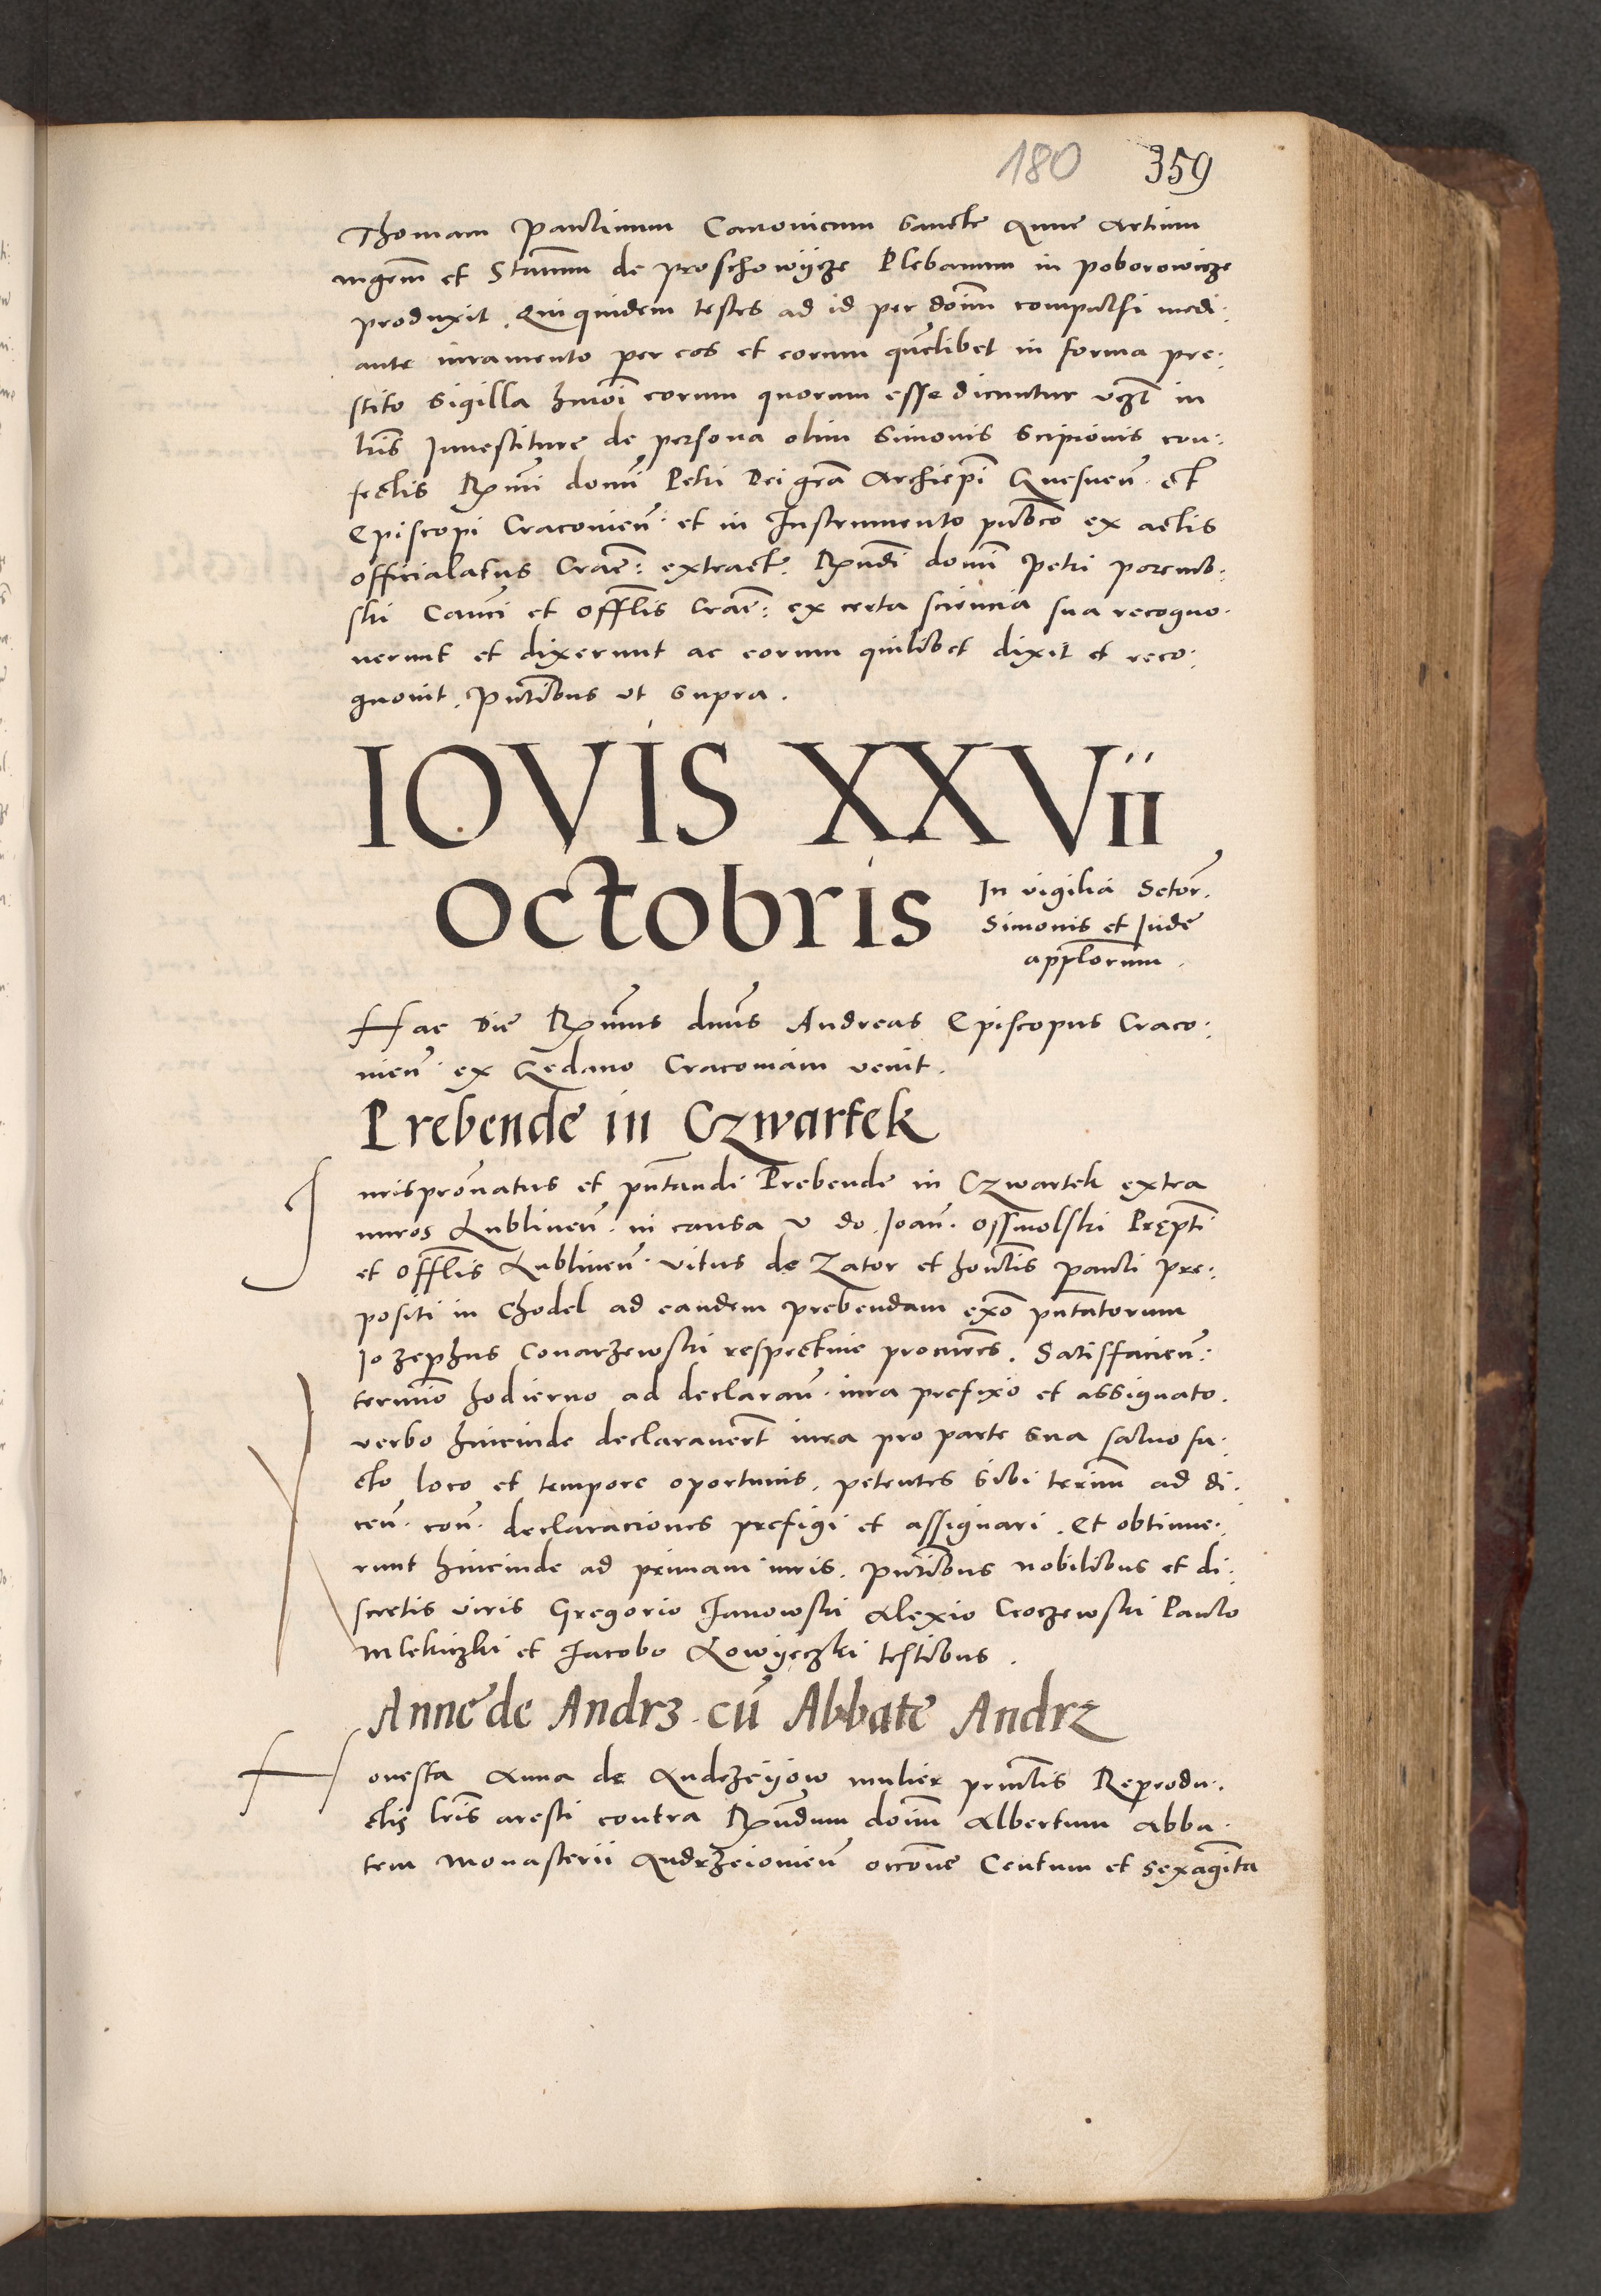 180 359
Thomam Paulinum Canonicum Sancte Anne Artium
mgrm̃ et Stanm̃ de proschowÿcze Plebanum in poborowicze
produxit. Qui quidem testes ad id per dom̃ compulsi medi:
ante iuramento per eos et eorum quẽlibet in forma pre:
stito sigilla hmõi eorum quorum esse dicuntur vcz̃t in
lr̃is Inuestiture de persona olim Simonis Scipionis con:
fectis Rm̃i domĩ Petri Dei gr̃a Archiep̃i Gnesneñ. et
Episcopi Cracovieñ: et in Instrumento pub̃co ex actis
officialatus Crac̃: extract̃. Rnd̃i domĩ petri poremb:
ski Canc̃i et Offl̃is Crac̃: ex certa sciencia sua recogno:
uerunt et dixerunt ac eorum quilibet dixit et reco:
gnouit. Pñtibus vt supra.
IOVIS XXVii
octobris
In vigilia Sctor̃.
Simonis et Iude
appl̃orum.
Hac die Rm̃us dñus Andreas Episcopus Craco:
uieñ ex Gedano Cracouiam venit.
Prebende in Czwartek
Iurispr̃onatus et pñtandi Prebende in Czwartek extra
muros Lublineñ. in causa v do. Ioañ. Ossmolski Pręp̃ti
et Offl̃is Lublineñ. Vitus de Zator et hon̄tis Pauli pre:
positi in Chodel ad eandem prebendam ex̃o pñtatorum
Iozephus Conarzewski respectiue procur̃es. Satisfacieñ:
termĩo hodierno ad declarañ. iura prefixo et assignato.
verbo hincinde declarauer̃t iura pro parte sua saluo fa:
cto loco et tempore oportunis. petentes sibi term̃ ad di:
ceñ. coñ. declaraciones prefigi et assignari. et obtinue:
runt hincinde ad primam iuris. Pñtibus nobilibus et di:
scretis viris Gregorio Janowski Alexio Croczewski Paulo
Mlekiczki et Jacobo Lowÿęczki testibus.
Anne de Andrz. cũ Abbate Andrz
Honesta Anna de Andrzeÿow mulier prin̄tis Reprodu:
ctis lr̃is aresti contra Rñdum dom̃ Albertum Abba:
tem Monasterii Andrzeiouieñ occõne Centum et sexagĩta